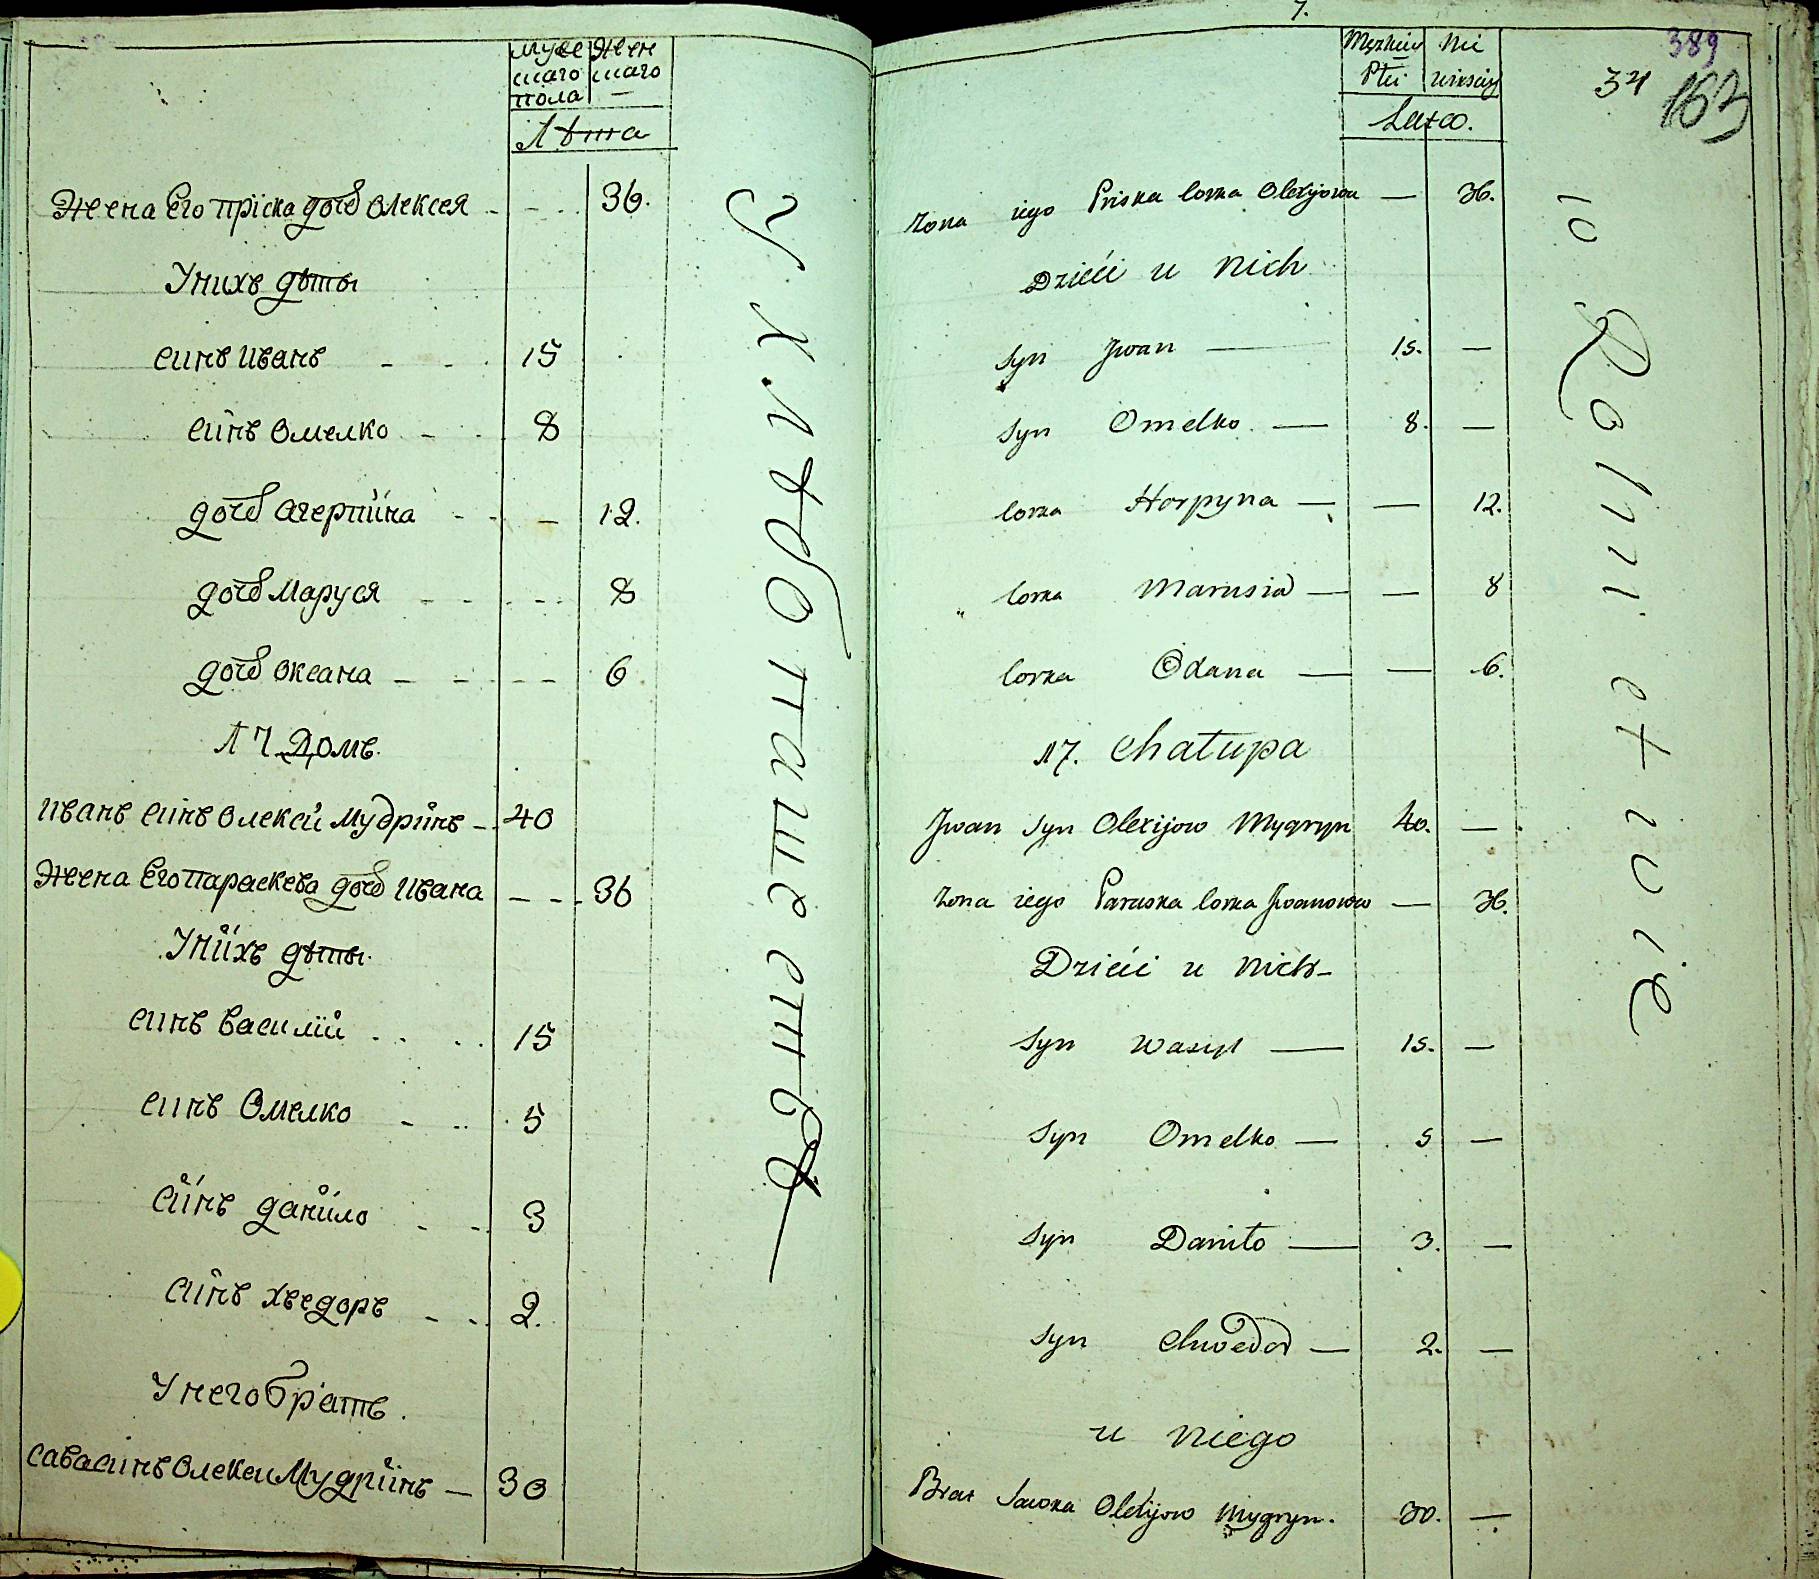 муже жен
скаго скаго
пола —
Лѣта
Жена Его прїска дочь Олексея - - - 36.
Унихъ дѣты
синъ Иванъ - - 15
синъ Омелко - - 8
дочь Агерпина - - - 12.
дочь Маруся - - - - 8
дочь Оксана - - - - 6
17 Домъ.
Иванъ синъ Олексѣй Мудринъ - 40
Жена Его Параскева дочь Ивана - - - 36
Унихъ дѣты.
синъ Василій - - 15
синъ Омелко - - 5
синъ Данило - - 3
синъ Хведоръ - - 2.
Унего братъ.
Сава синъ Олекси Мудринъ — 30
У Хлѣбопашествѣ
7.
389
34
163
Męzkiey Nie
Płci wieściey
Lata.
żona iego Priska corka Olexijowa — 36.
Dzieći u nich
Syn Jwan — 15. —
Syn Omelko — 8. —
Corka Horpyna — — 12.
Corka Marusia — — 8
Corka Oxana — — 6.
17. Chałupa
Jwan Syn Olexijow Mygryn 40. —
żona iego Paraska Corka Jwanowa — 36.
Dzieći u nich
Syn Wasyl — 15. —
Syn Omelko — 5 —
Syn Daniło — 3. —
Syn Chwedor — 2. —
u niego
Brat Sawka Olexijow Mygryn. 30. —
w Rolnictwie